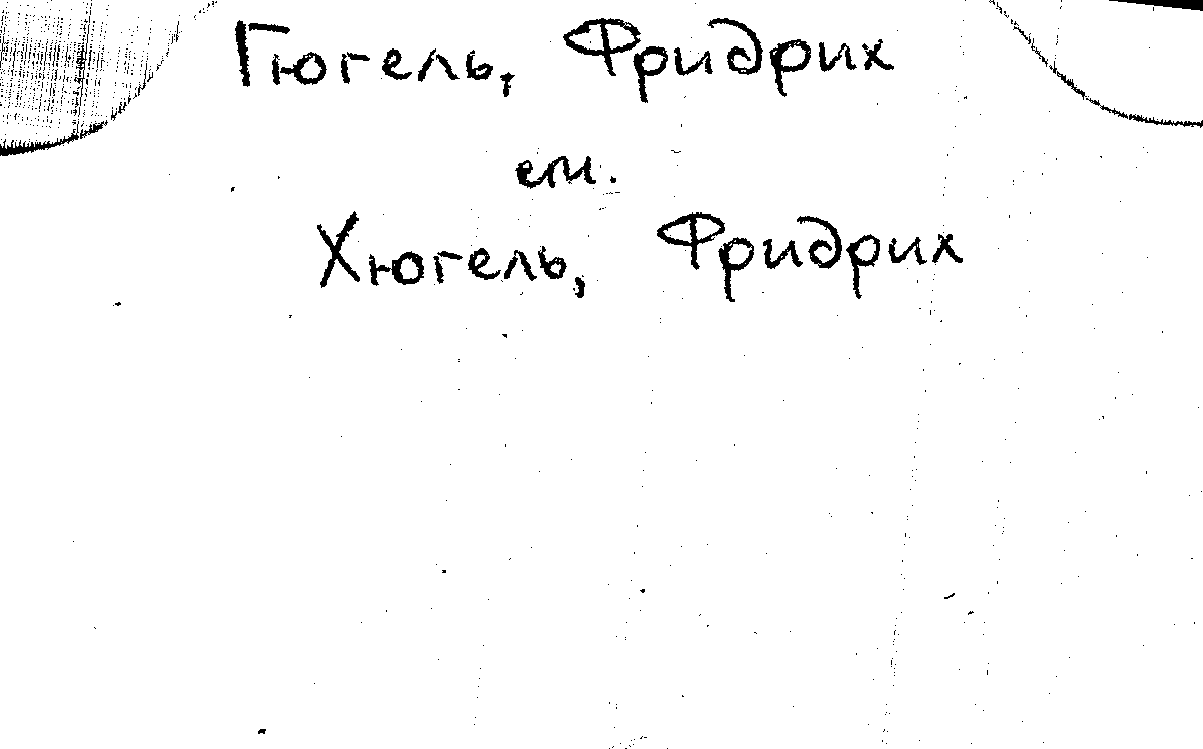 Гюгель, Фридрих
см.
Хюгель, Фридрих